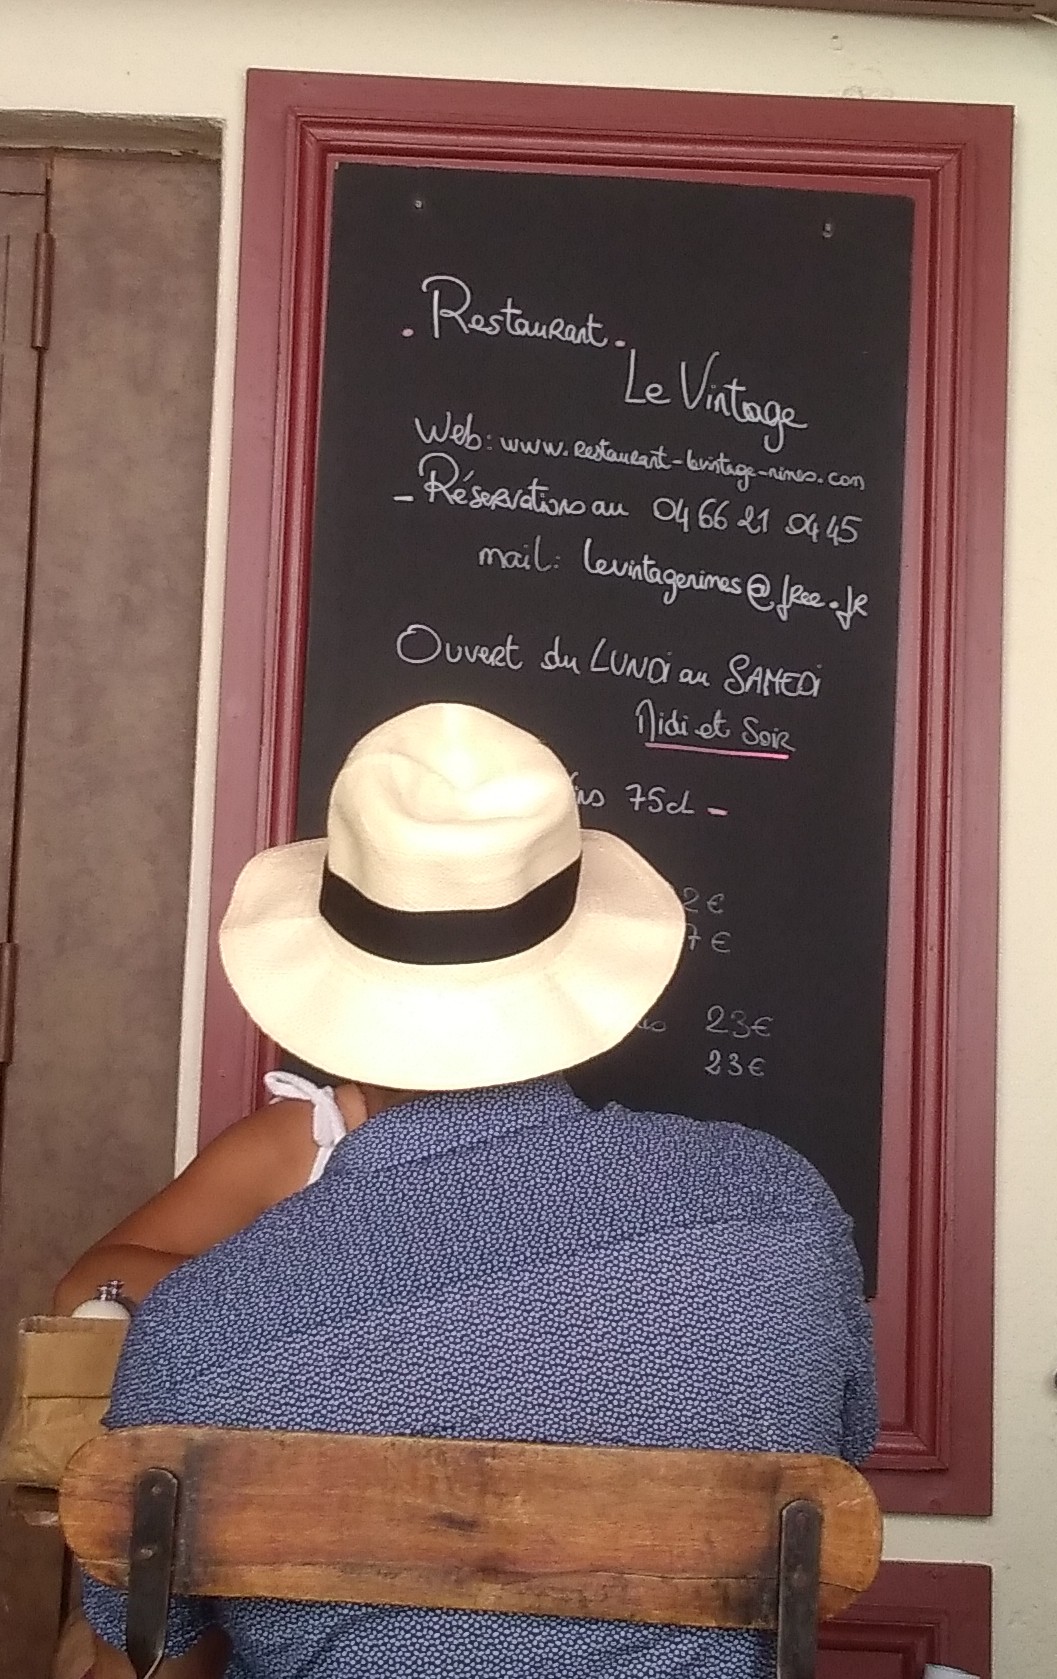 . Restaurant.
Le Vintage
Web: www.restaurant-levintage-nimes.com
- Réservations au 04 66 21 04 45
mail: levintagenimes@free.fr
Ouvert du LUNDI au SAMEDI
Midi et Soir
75cl -
2€
7€
23€
23€